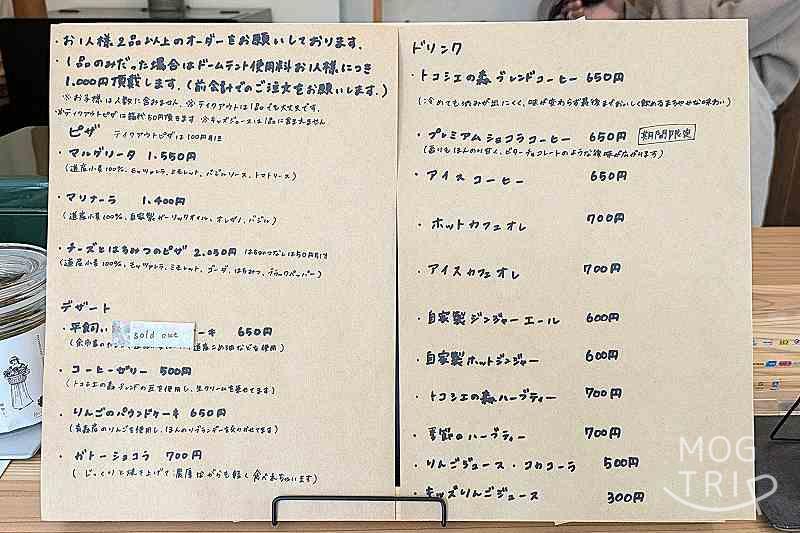 ・お1人様2品以上のオーダーをお願いしております。
・1品のみだった場合はドームテント使用料お1人様につき
1,000円頂戴します。(前会計でのご注文をお願いします。)
※お子様は人数に含みません ※テイクアウトは1品でも大丈夫です。
※テイクアウトピザは箱代50円頂きます ※キッズジュースは1品に含まれません
ピザ テイクアウトピザは100円引き
・マルゲリータ 1,550円
(道産小麦100%、モッツァレラ、ミモレット、バジルソース、トマトソース)
・マリナーラ 1,400円
(道産小麦100%、自家製ガーリックオイル、オレガノ、バジル)
・チーズとはちみつのピザ 2,050円 はちみつなしは50円引き
(道産小麦100%、モッツァレラ、ミモレット、ゴーダ、はちみつ、ブラックペーパー)
デザート
・平飼い sold out ーキ 650円
道産こめ油などを使用)
・コーヒーゼリー 500円
(トコシエの森ブレンドの豆を使用し、生クリームを乗せてます)
・りんごのパウンドケーキ 650円
のりんごを使用し、ほんのりブランデーをきかせてます)
・ガトーショコラ 700円
(じっくりと焼き上げて濃厚ながらも軽く食べれちゃいます)
ドリンク
・トコシエの森ブレンドコーヒー 650円
(冷めても渋みが出にくく、味が変わらず最後までおいしく飲めるまろやかな味わい)
・プレミアムショコラコーヒー 650円 期間限定
(香りもほんのり甘く、ビターチョコレートのような後味が広がります)
・アイスコーヒー 650円
・ホットカフェオレ 700円
・アイスカフェオレ 700円
・自家製ジンジャーエール 600円
・自家製ホットジンジャー 600円
・トコシエの森ハーブティー 700円
・季節のハーブティー 700円
・りんごジュース・コカコーラ 500円
・キッズりんごジュース 300円
MOG
TRIP